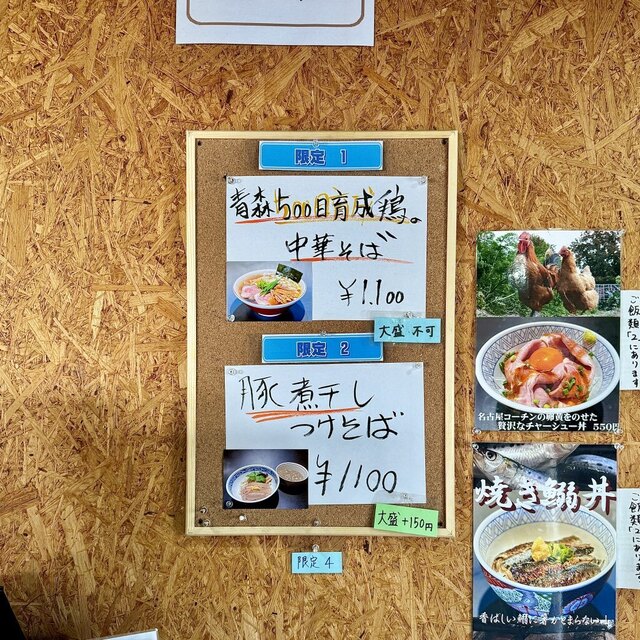 限定 1
青森500日育成鶏の
中華そば
¥1.100
大盛 不可
限定 2
豚煮干し
つけそば
¥1100
大盛+150円
限定 4
名古屋コーチンの卵黄をのせた
贅沢なチャーシュー丼 550円
ご飯類「2」
にあります
焼き鰯丼
香ばしい鰯に箸がとまらない